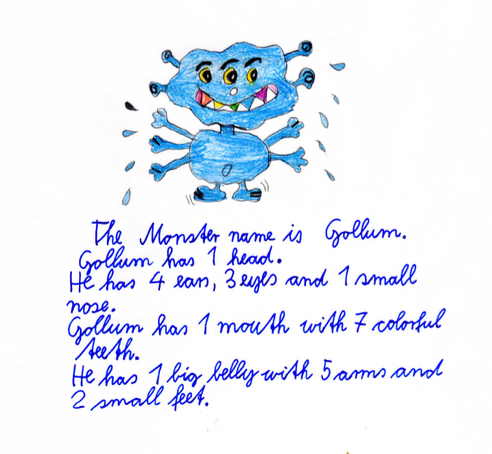 The Monster name is Gollum.
Gollum has 1 head.
He has 4 ears, 3 eyes and 1 small
nose.
Gollum has 1 mouth with 7 colorful
teeth.
He has 1 big belly with 5 arms and
2 small feet.